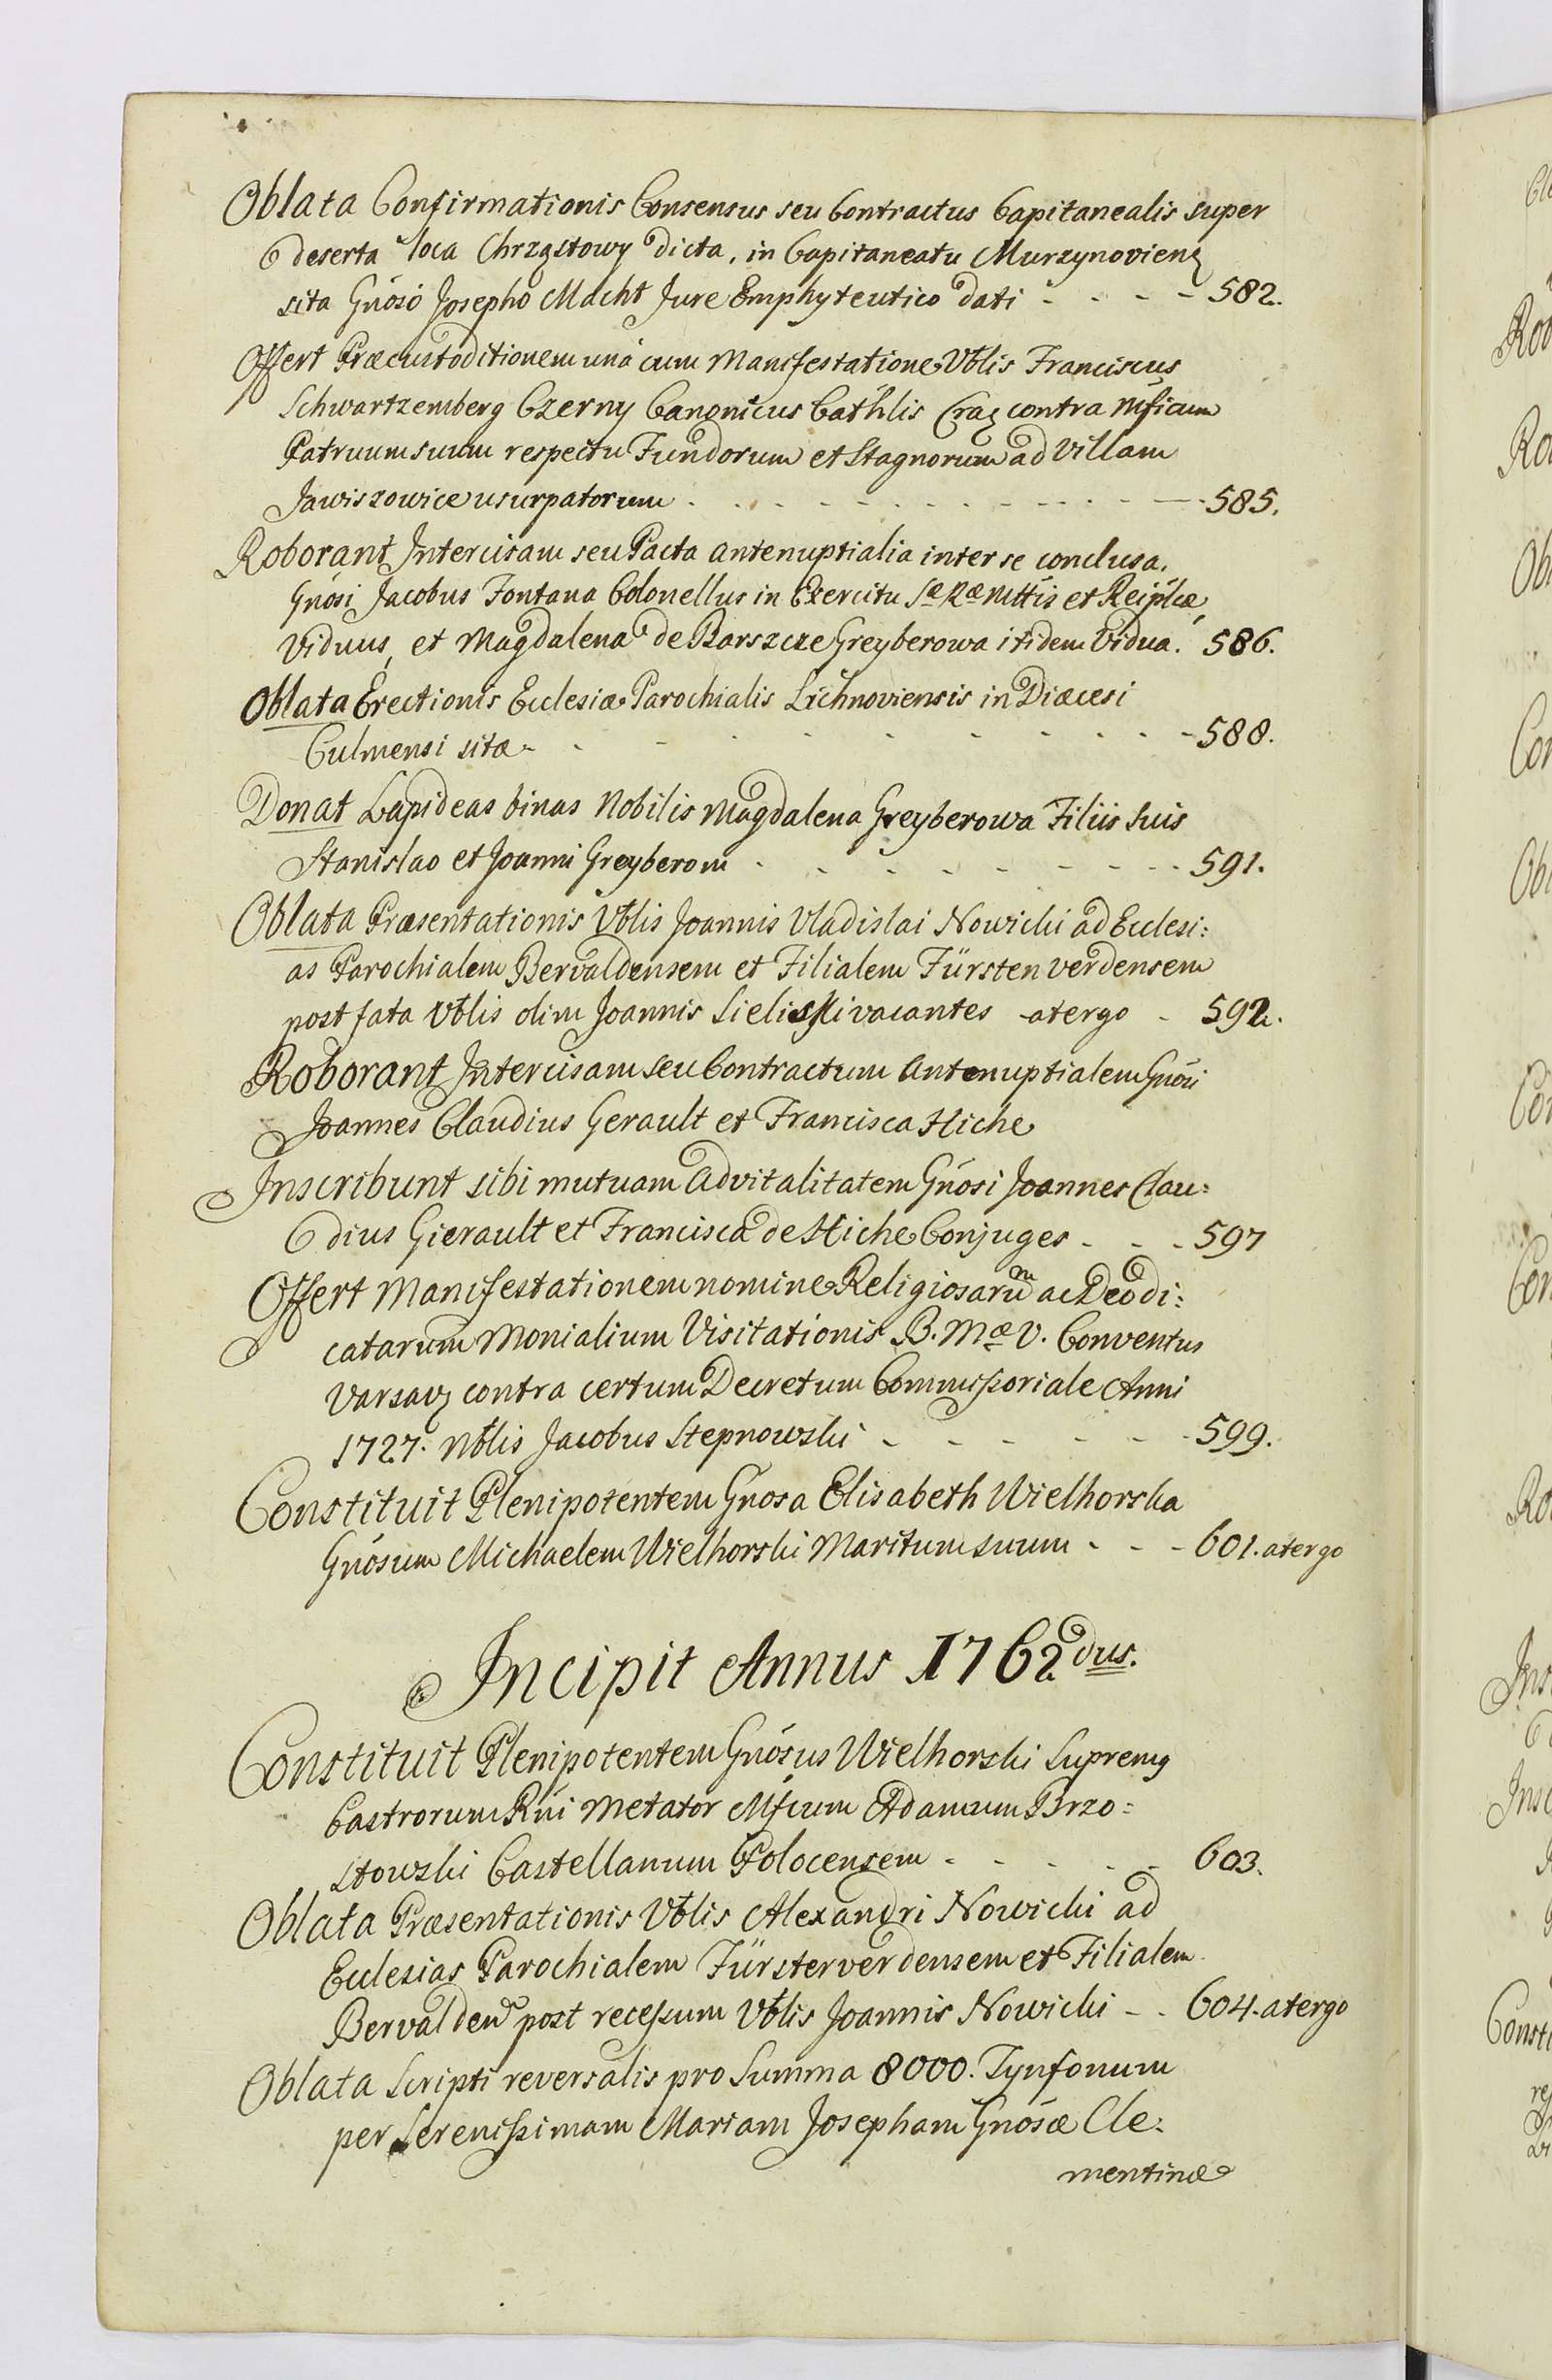 Oblata Confirmationis Consensus seu Contractus Capitanealis super
deserta loca Chrząstowy dicta, in Capitaneatu Murzynovienȝ
sita Gnoso Josepho Macht Jure Emphyteutico dati - - - - 582.
Offert Præcustoditionem unà cum Manifestatione Vblis Franciscus
Schwartzemberg Czerny Canonicus Cathlis Cracȝ contra Mficum
Patruum suum respectu Fundorum et Stagnorum ad Villam
Jawiszowice usurpatorum - - - - - - - - - 585.
Roborant Intercisam seu Pacta antenuptialia inter se conclusa.
Gnosi Jacobus Fontana Colonellus in Exercitu Sæ Ræ Mttis et Reiplcæ
Viduus, et Magdalena de Barszcze Greyberowa itidem Vidua. 586.
Oblata Erectionis Ecclesiæ Parochialis Lichnoviensis in Diæcesi
Culmensi sitæ - - - - - - - - - 588.
Donat Lapideas binas Nobilis Magdalena Greyberowa Filiis suis
Stanislao et Joanni Greyberom - - - - - - - 591.
Oblata Præsentationis Vblis Joannis Vladislai Nowicki ad Ecclesi:
as Parochialem Bervaldensem et Filialem Fürstenverdensem
post fata Vblis olim Joannis Sieliski vacantes atergo - 592.
Roborant Intercisam seu Contractum Antenuptialem Gnosi
Joannes Claudius Gerault et Francisca Hiche
Inscribunt sibi mutuam advitalitatem Gnosi Joannes Clau:
dius Gierault et Francisca de Hiche Conjuges - - - 597
Offert Manifestationem nomine Religiosarum ac Deo di:
catarum Monialium Visitationis B. Mæ V. Conventus
Varsavȝ contra certum Decretum Commissoriale Anni
1727. Nblis Jacobus Stepnowski - - - - - - 599.
Constituit Plenipotentem Gnosa Elisabeth Wielhorska
Gnosum Michaelem Wielhorski Maritum suum - - - 601. atergo
Incipit Annus 1762dus.
Constituit Plenipotentem Gnosus Wielhorski Supremꝰ
Castrorum Rni Metator Mfcum Adamum Brzo:
stowski Castellanum Polocensem - - - - - 603.
Oblata Præsentationis Vblis Alexandri Nowicki ad
Ecclesias Parochialem Fürsterverdensem et Filialem
Bervalden post recessum Vblis Joannis Nowicki - - 604. atergo
Oblata Scripti reversalis pro Summa 8000. Tynfonum
per Serenissimam Mariam Josepham Gnosæ Cle:
mentinæ